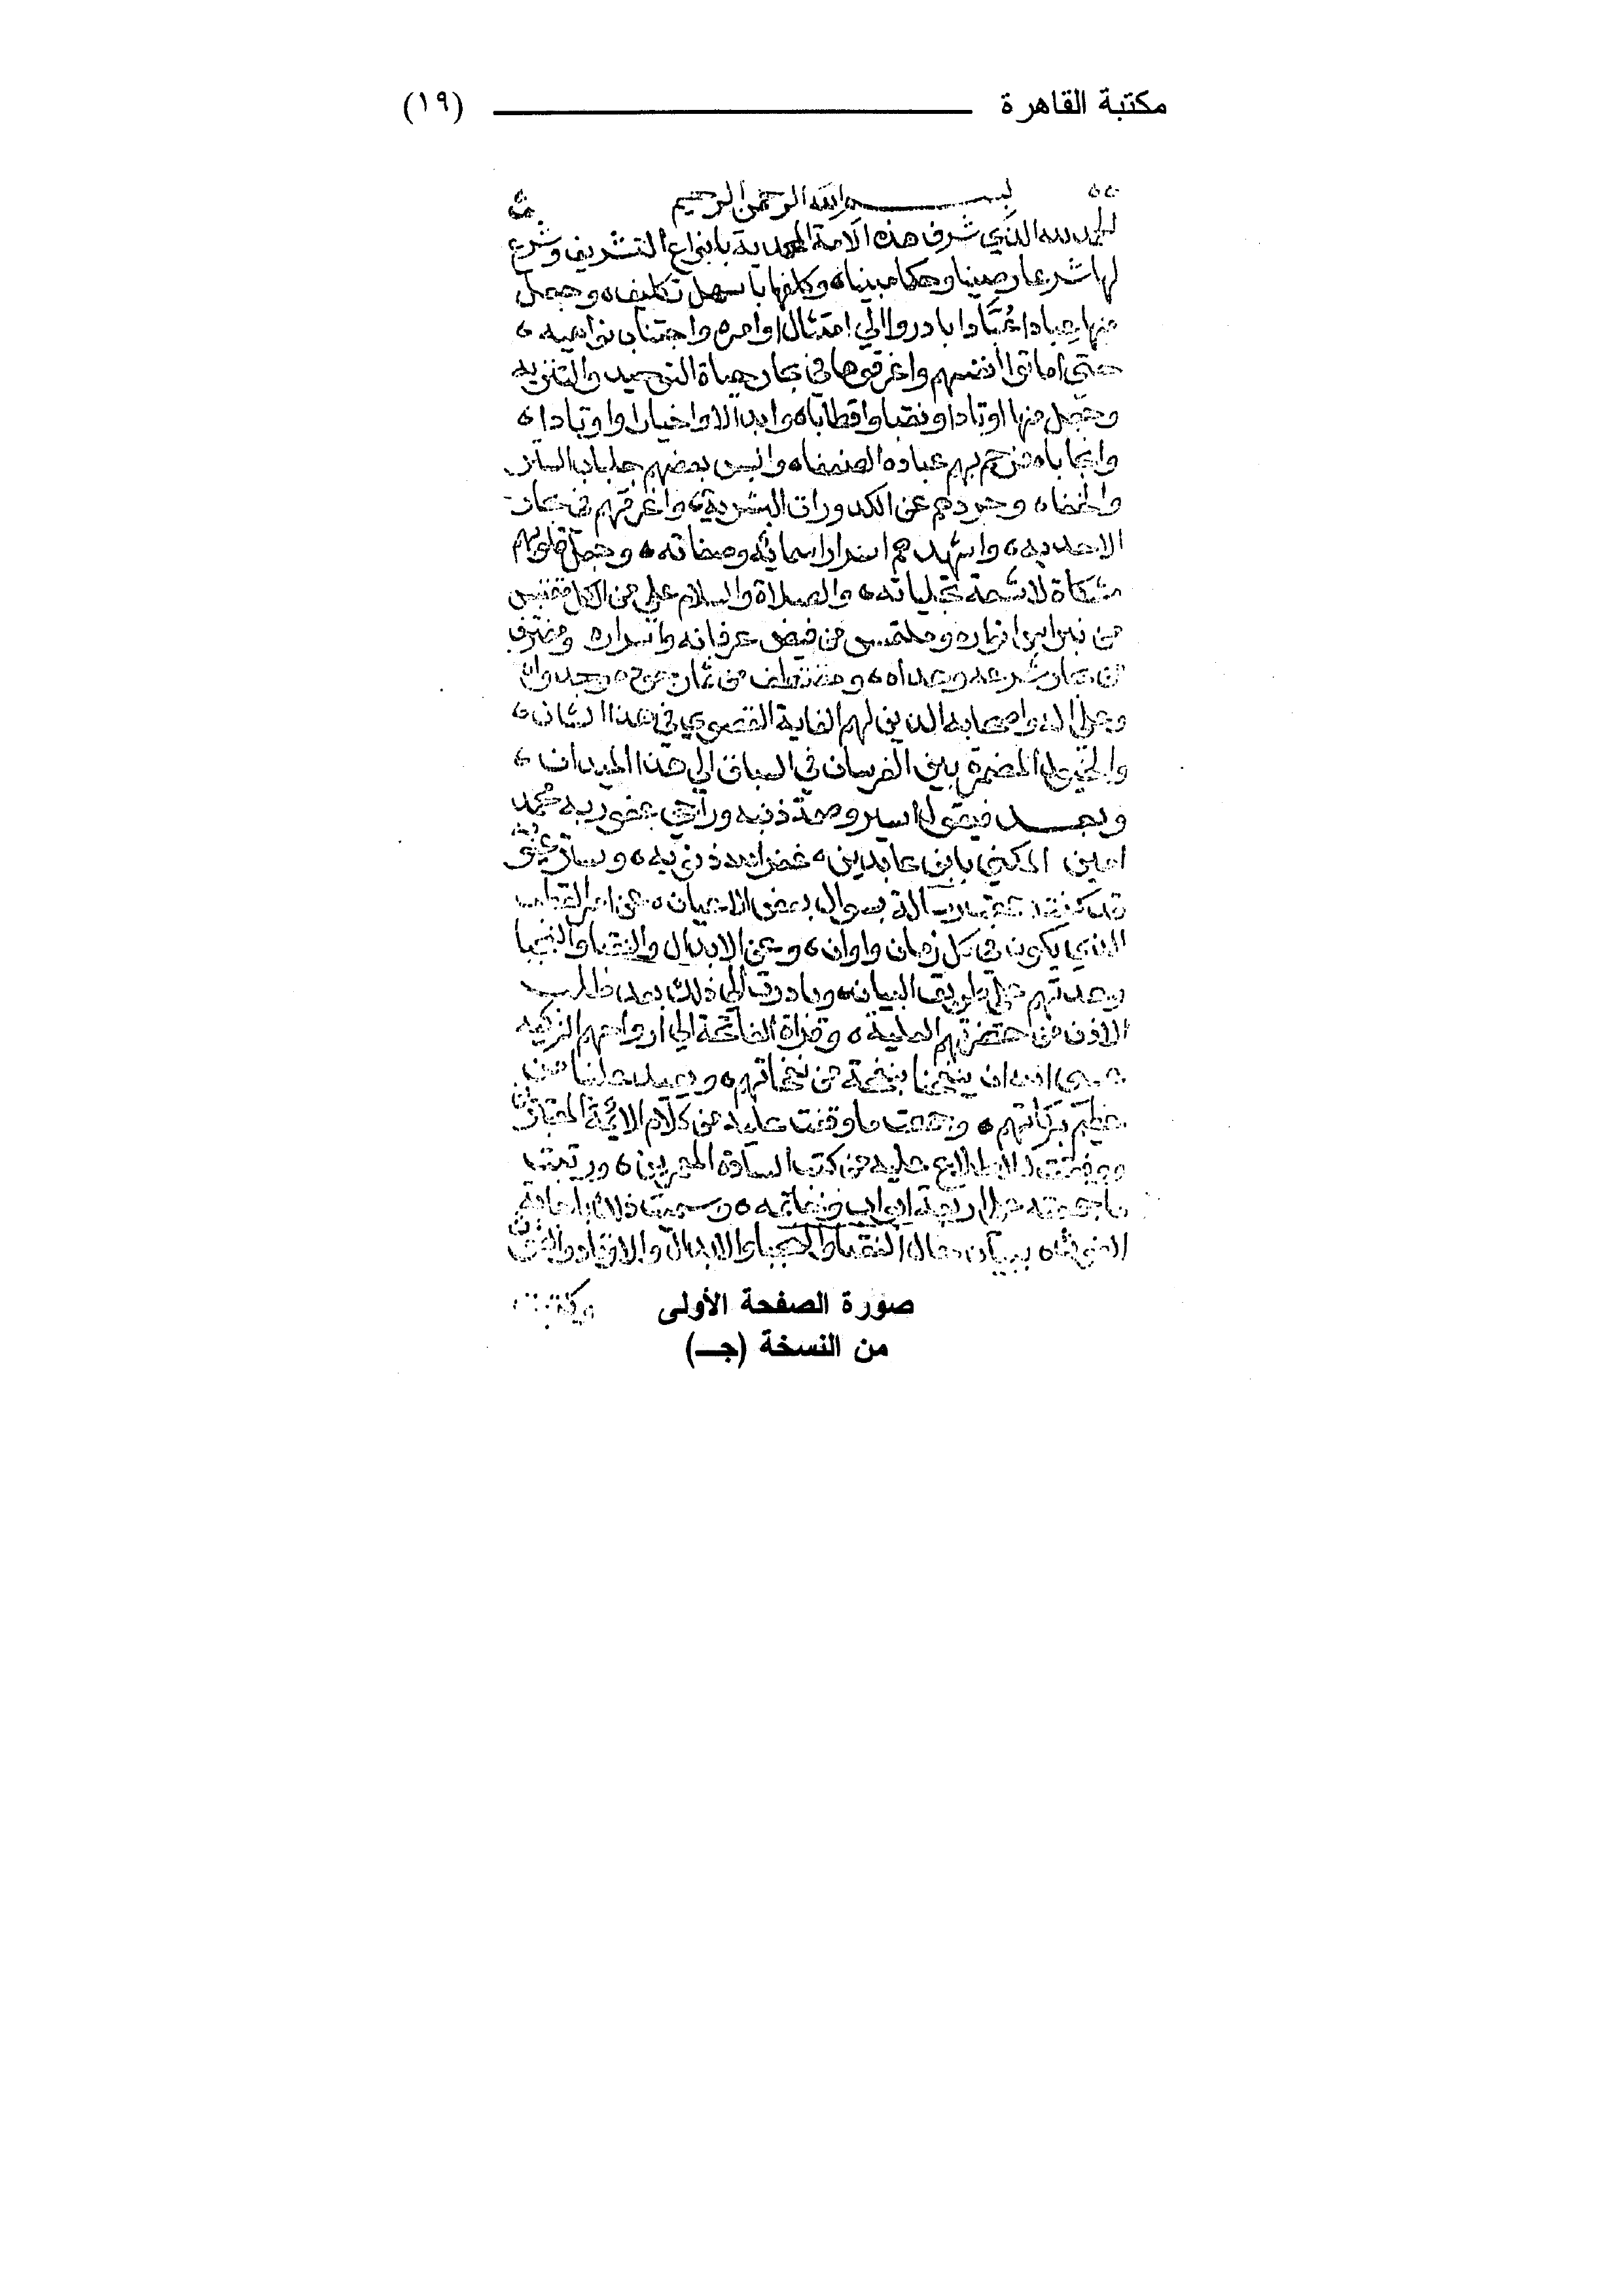 مكتبة القاهرة (١٩)
بسم الله الرحمن الرحيم
الحمد لله الذي شرف هذه الامة المحمدية بانواع التشريف وشرع
لها شرعا رصينا وحكما مبينا وكلفها باسهل تكليف وجعل
منها عبادا عُبَّادا بادروا الي امتثال اوامره واجتناب نواهيه
حتي اماتوا انفسهم واغرقوها في بحار حياة التوحيد والتنزيه
وجعل منها اوتادا ونقبا واقطابا وابدالا واخيارا واوتادا
وانجابا فرحم بهم عباده الضعفاء والبس بعضهم جلباب الستر
والخفاء وجردهم عن الكدورات البشرية واغرقهم في بحار
الاحديه واشهدهم اسرار اسمائه وصفاته وجعل قلوبهم
مشكاة لاشعة تجلياته والصلاة والسلام علي من الكل مقتبس
من نبراس انواره وملتمس من فيض عرفانه واسراره ومغترف
من بحار شرعه وهداه ومقتطف من ثمار
وعلي اله واصحابه الذين لهم الغاية القصوي في هذا الشان
والخيول المضمرة بين الفرسان في السباق الي هذا الميدان
وبعد فيقول اسير وصمة ذنبه وراجي عفو ربه محمد
امين المكني بابن عابدين غفر الله ذنوبه وستر عيوبه
قد كنت جمعت رسالة بسوال بعض الاعيان عن امر القطب
الذي يكون في كل زمان واوان وعن الابدال والنقبا والنجبا
وعدتهم علي طريق البيان وبادرت الي ذلك بعد طلب
الاذن من حضرتهم العلية وقراة الفاتحة الي ارواحهم الزكيه
عسي الله ان ينفحنا بنفحة من نفحاتهم ويعيد علينا من
عظيم بركاتهم وجمعت ما وقفت عليه من كلام الائمة المعتبرين
ووفقت للاطلاع عليه من كتب السادة المعمرين ورتبت
ما جمعته علي اربعة ابواب وخاتمه وسميت ذلك باجابة
الغوث ببيان حال النقبا والنجبا والابدال والاوتاد والغوث
صورة الصفحة الأولى
من النسخة (جـ)